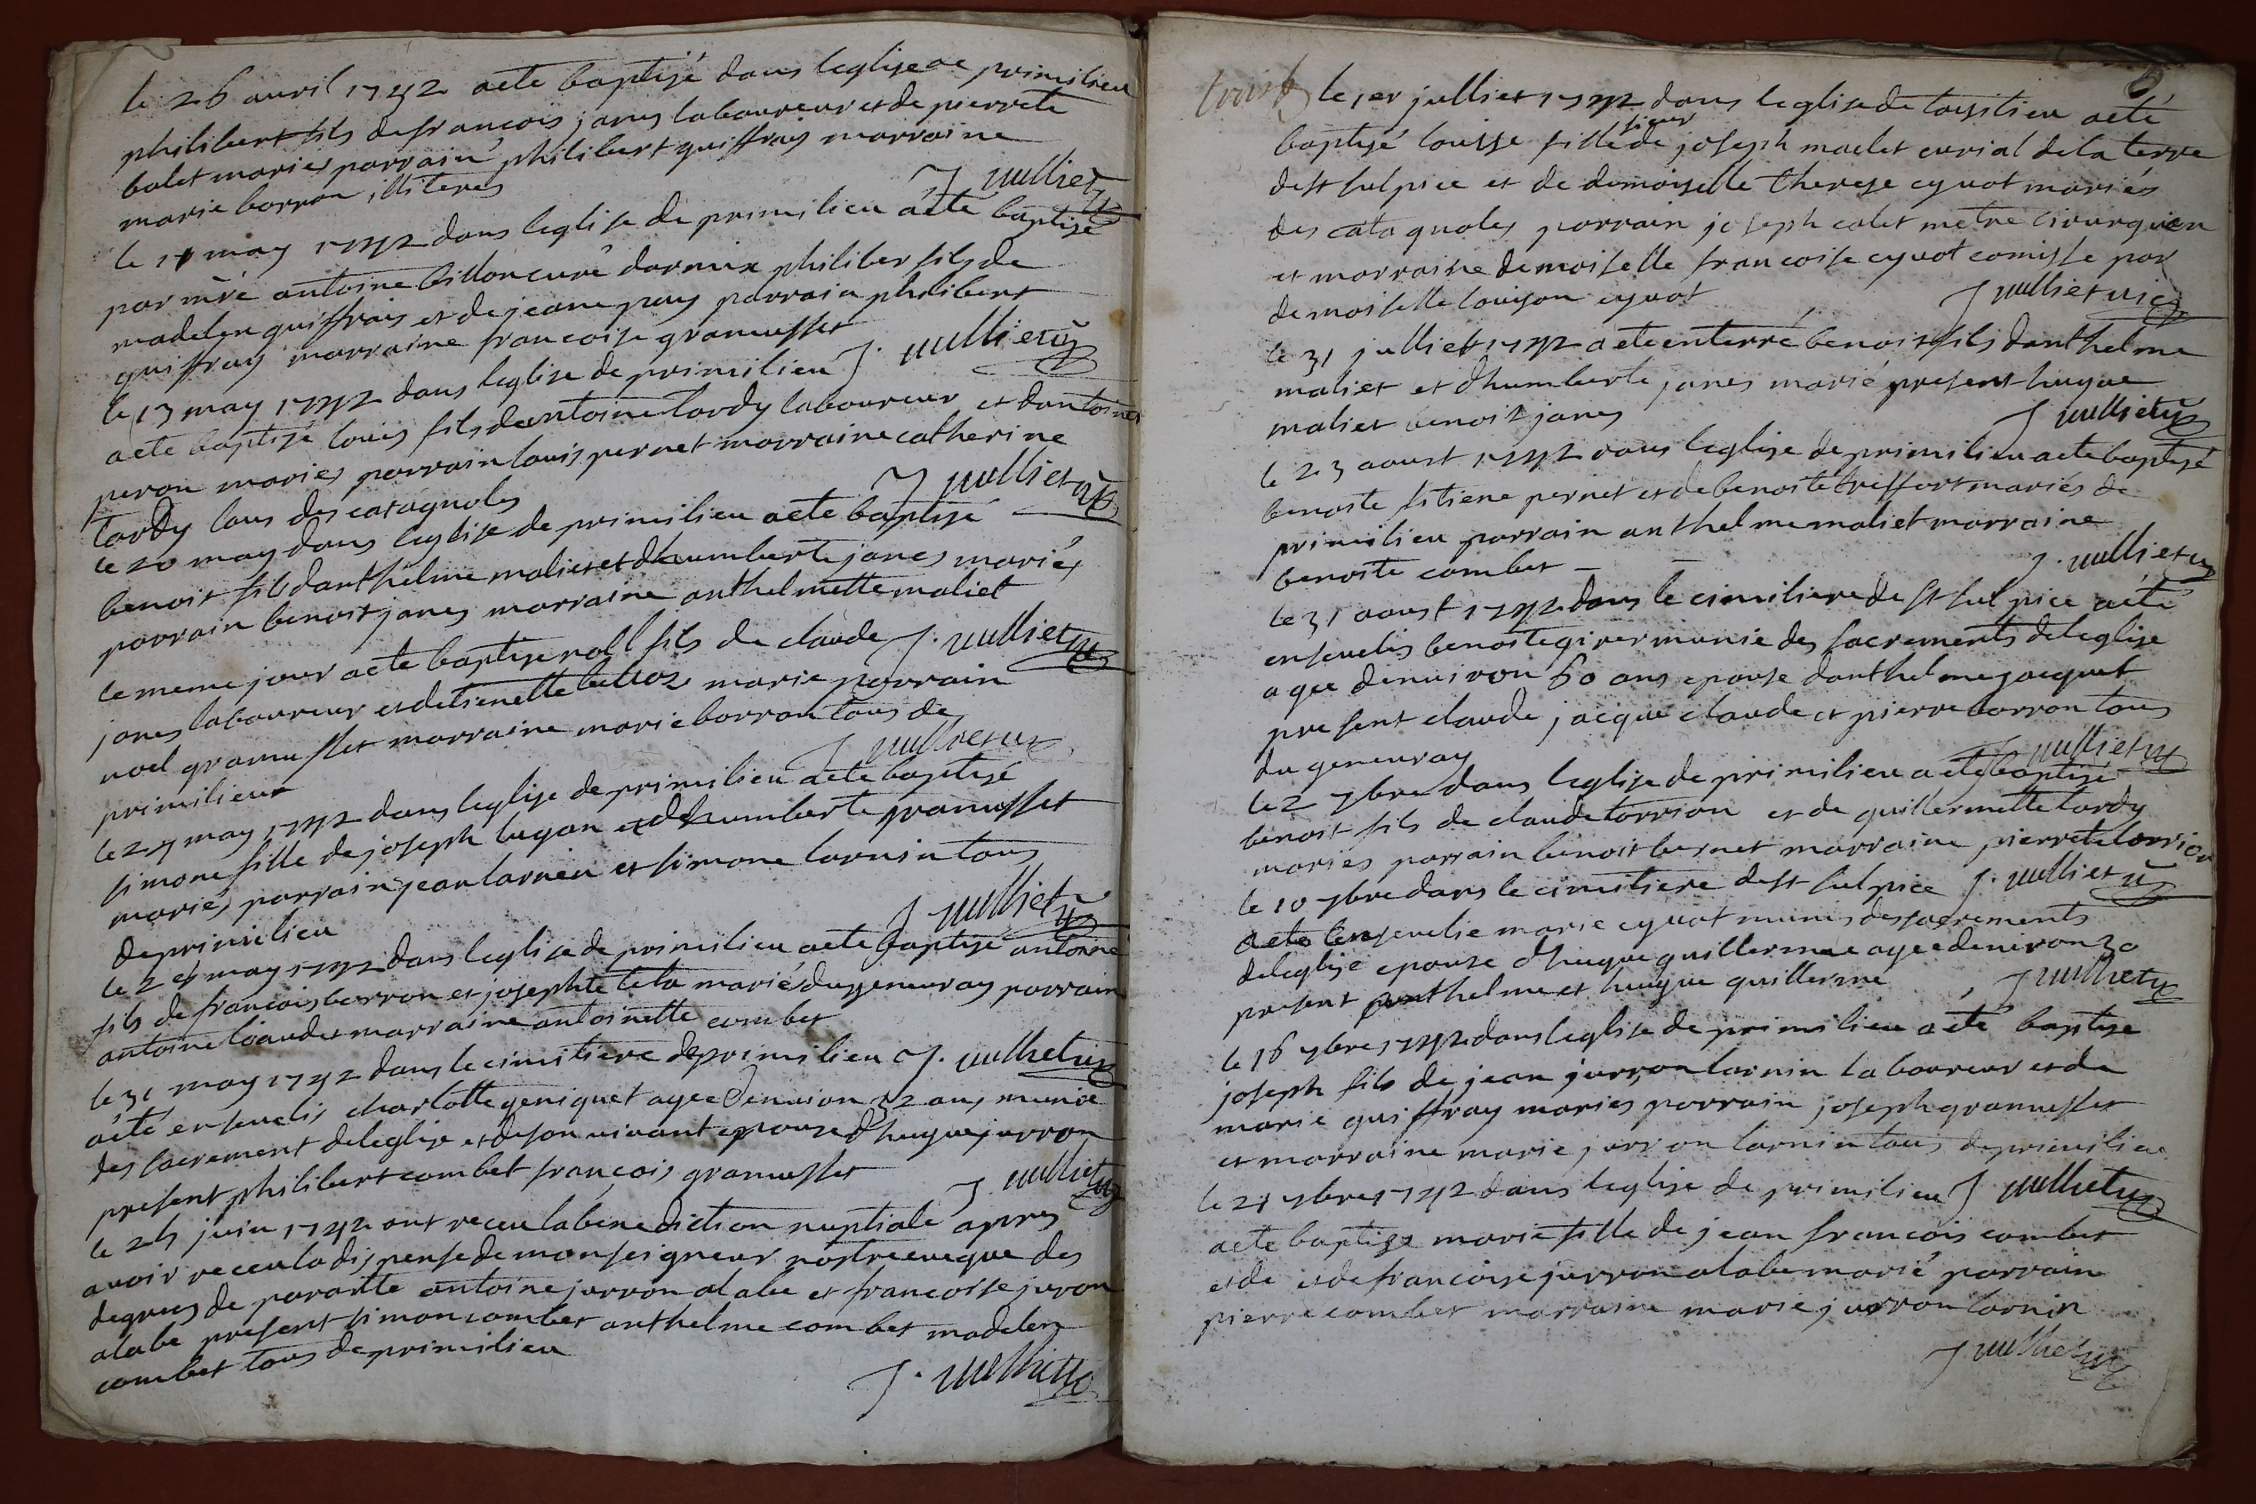 le 26 avril 1742 aete baptisé dans leglise de primilieu
philibert fils de francois janes laboureur et de pierrete
balet mariés parrain philibert guiffray marraine
marie borron illiterés
J jullliet
le 11 may 1742 dans leglise de primilieu aeté baptisé
par mre antoine billon curé darmix philiber fils de
madelen guiffrais et de jeane pay parrain philibert
guiffray marraine francoise gramusset
J. jullliet
le 13 may 1742 dans leglise de primilieu
aete baptisé louis fils dantoine tardy laboureur et dantoinet
peron mariés parrain louis pernet marraine catherine
tardy tous des catagnoles
J jullliet
le 20 may dans leglise de primilieu aete baptisé
benoit fils danthelme maliet et dhumberte janes mariés
parrain benoit janes marraine anthelmette maliet
le meme jour aete baptise noel fils de claude J. jullliet
janes laboureur et detienette marie parrain
noel gramusset marraine marie borron tous de
primilieu
J jullliet
le 24 may 1742 dans leglise de primilieu aete baptisé
simone fille de joseph lugan et dhumberte gramusset
mariés parrain jean larnin et simone larnin tous
de primilieu
J jullliet
le 28 may 1742 dans leglise de primilieu aete baptise antoine
fils de francois borron et josephte tela mariés du genevray parrain
antoine marraine antoinette combet
le 31 may 1742 dans le cimitiere de primilieu J. jullliet
aété ensevelis charlotte geniquet agee denvion 32 ans munie
des sacrement deleglise et de son vivant epouse dhugue jurron
present philibert combet françois gramusset
J jullliet
le 25 juin 1742 ont receu la bénédiction nuptiale apres
avoir receu la dispense de monseigneur nostre eveque des
degrees de parante antoine jurron alabe et francoise juron
alabe present simon combet anthelme combet madelen
combet tous de primilieu
J. jullliet
le 1er julliet 1742 dans leglise de loisilieu aeté
baptisé louisse fille de sieur joseph maclet curial de la terre
de st sulpice et de demoiselle therese cyvot mariés
des catagnoles parrain joseph calet metre cirurgien
et marraine demoiselle francoise cyvot comisse par
demoiselle louison cyvot
J jullliet vic
le 31 julliet 1742 aete enterré benoit fils danthelme
maliet et dhumberte janes marié present hugue
maliet benoit janes
J jullliet
le 23 aoust 1742 dans leglise de primilieu aete baptisé
benoite f etiene pernet et de benoite treffort mariés de
primilieu parrain anthelme maliet marraine
benoite combet
J. jullliet
le 31 aoust 1742 dans le cimitiere de st sulpice aeté
ensevelis benoite girer munie des sacrements deleglise
agee denviron 60 ans epouse danthelme jacquet
present claude jacque claude et pierre borron tous
du genevray
J jullliet
le 2 7bre dans leglise de primilieu aete baptisé
benoit fils de claude torrion et de guillermette tardy
mariés parrain benoit bernet marraine pierrete torrion
le 10 7bre dans le cimitiere de st sulpice J. jullliet
aete ensevelie marie cyvot munis des sacrements
deleglise epouse dhugue guillerme agee denviron 30
present anthelme et hugue guillerme
J jullliet
le 16 7bre 1742 dans leglise de primilieu aété baptise
joseph fils de jean jurron larnin laboureur et de
marie guiffray mariés parrain joseph gramusset
et marraine marie jurron larnin tous de primilieu
le 21 7bre 1742 dans leglise de primilieu J jullliet
aete baptise marie fille de jean francois combet
et de et de francoise jurron alabe marié parrain
pierre combet marraine marie jurron larnin
J jullliet